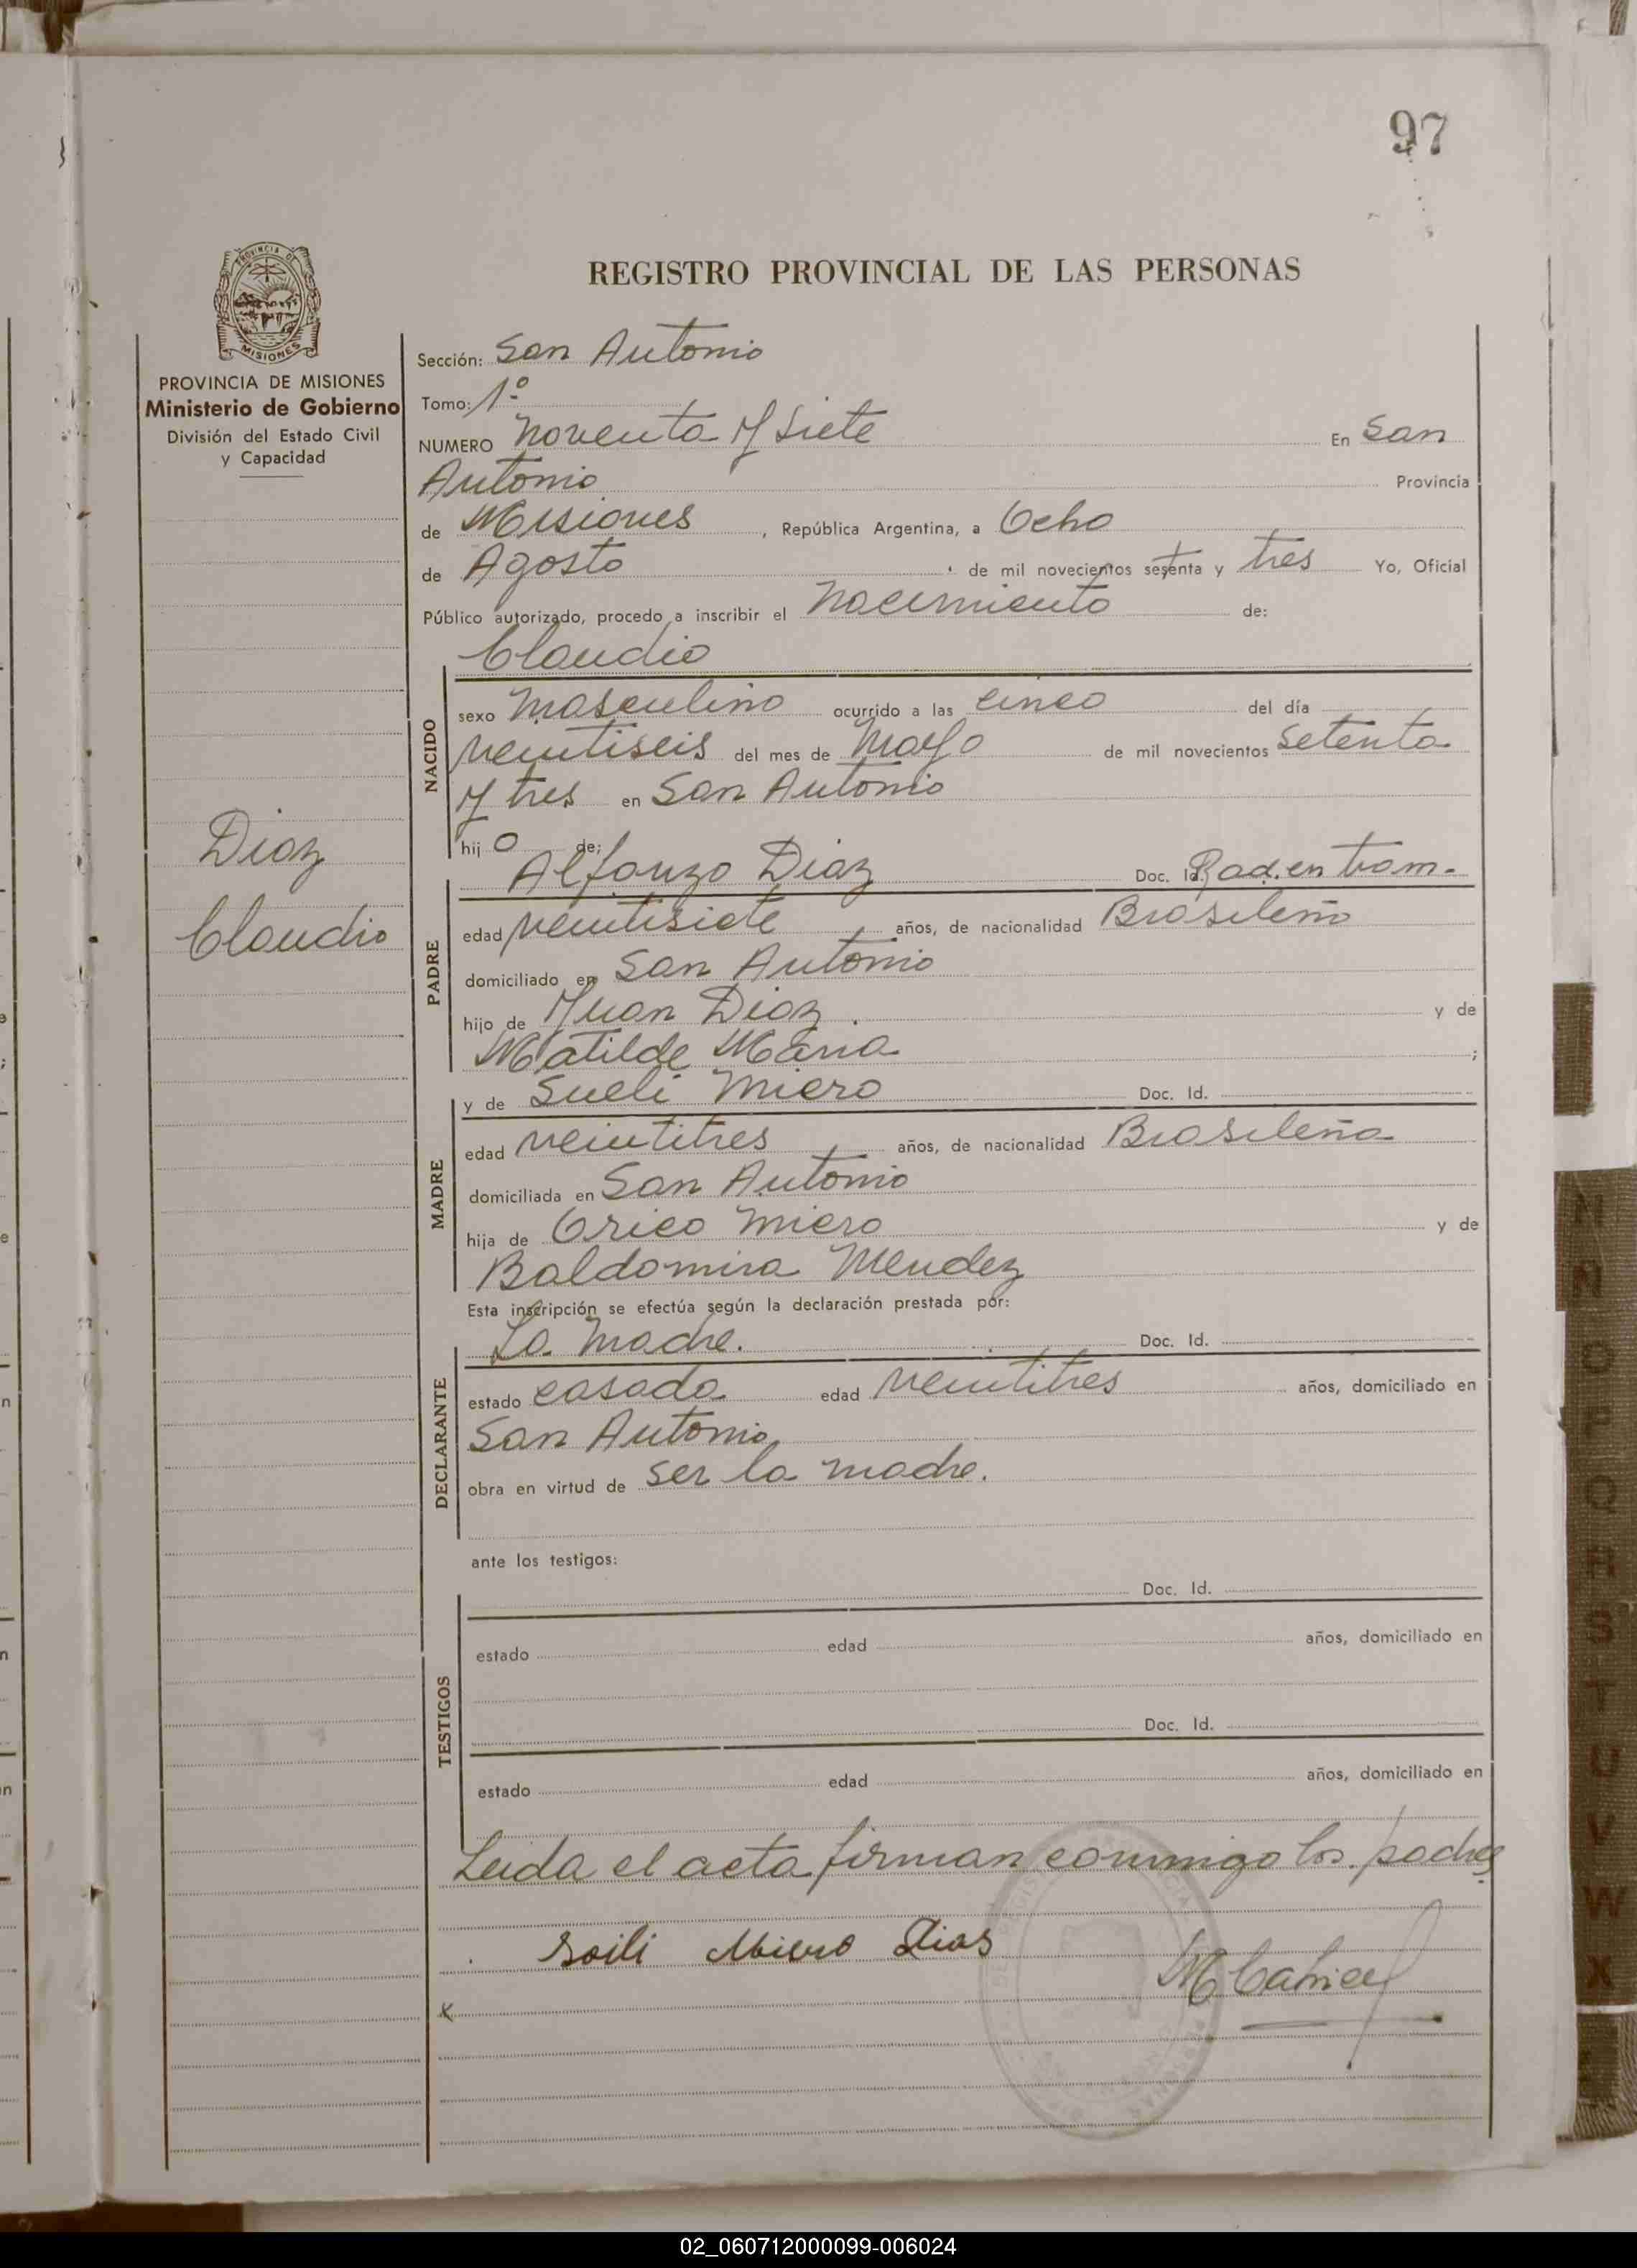 97
REGISTRO PROVINCIAL DE LAS PERSONAS
PROVINCIA DE
MISIONES
PROVINCIA DE MISIONES
Ministerio de Gobierno
División del Estado Civil
y Capacidad
Diaz
Claudio
Sección: San Antonio
Tomo: 1º
NUMERO Noventa y Siete En San
Antonio Provincia
de Misiones, República Argentina, a Ocho
de Agosto de mil novecientos setenta y tres Yo, Oficial
Público autorizado, procedo a inscribir el Nacimiento de:
Claudio
NACIDO
sexo Masculino ocurrido a las cinco del día
veintiseis del mes de Mayo de mil novecientos Setenta
y tres en San Antonio
hijo de:
Alfonzo Diaz Doc. Id. Rad. en tram.
PADRE
edad veintisiete años, de nacionalidad Brasileño
domiciliado en San Antonio
hijo de Juan Diaz. y de
Matilde Maria ;
y de Sueli Miero Doc. Id.
MADRE
edad veintitres años, de nacionalidad Brasileña
domiciliada en San Antonio
hija de Orico Miero y de
Baldomira Mendez
Esta inscripción se efectúa según la declaración prestada por:
La Madre. Doc. Id.
DECLARANTE
estado casada edad veintitres años, domiciliado en
San Antonio
obra en virtud de ser la madre.
ante los testigos:
Doc. Id.
TESTIGOS
estado edad años, domiciliado en
Doc. Id.
estado edad años, domiciliado en
Leida el acta firman conmigo los padres
Soili Miero Dias
x
N
Ñ
O
P
Q
R
S
T
U
V
W
X
02_060712000099-006024